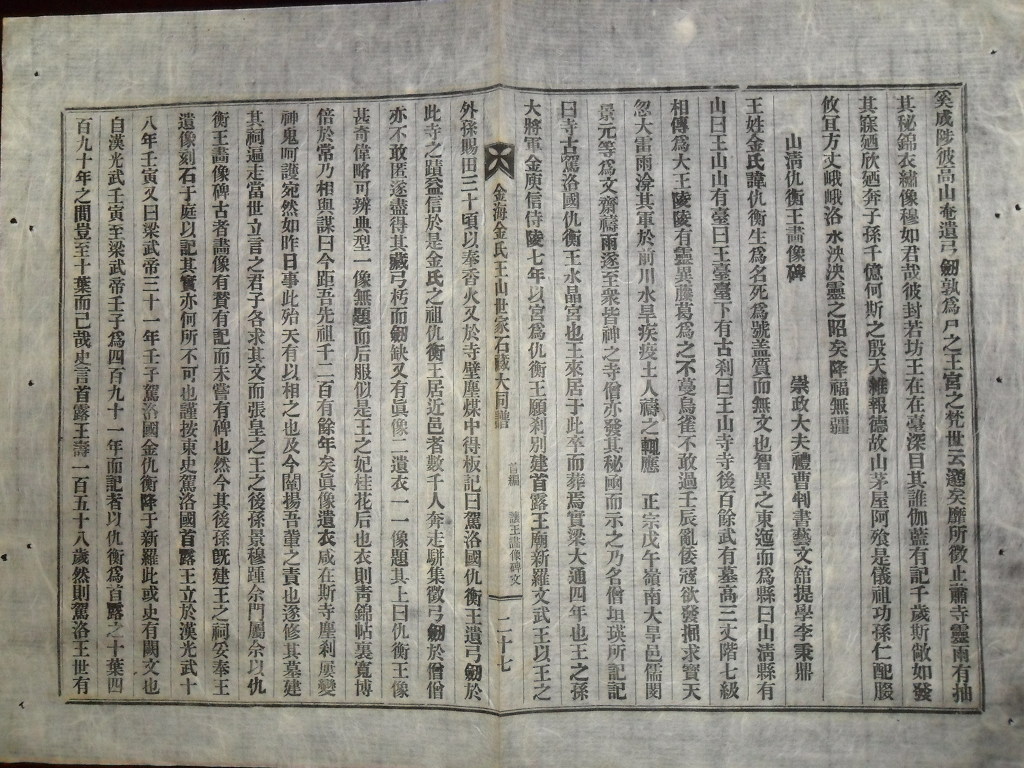 奚咸陟彼高山奄遺弓劒孰爲尸之王宮之梵世云邈矣靡所徵止蕭寺靈雨有抽
其秘錦衣繡像穆如君哉彼封若坊王在在臺深目其誰伽藍有記千歲斯敞如發
其寐廼欣廼奔子孫千億何斯之殷天雖報德故山茅屋阿飱是儀祖功孫仁配腏
攸宜方丈峨峨洛水泱泱靈之昭矣降福無疆
山淸仇衡王畵像碑
崇政大夫禮曹判書藝文館提學李秉鼎
王姓金氏諱仇衡生爲名死爲號盖質而無文也智異之東迤而爲縣曰山淸縣有
山曰王山山有臺曰王臺臺下有古刹曰王山寺寺後百餘武有墓高三丈階七級
相傳爲大王陵陵有靈異藤葛爲之不蔓烏雀不敢過壬辰亂倭寇欲發掘求寶天
忽大雷雨渰其軍於前川水旱疾疫土人禱之輒應 正宗戊午嶺南大旱邑儒閔
景元等爲文齋禱雨遂至衆皆神之寺僧亦發其秘凾而示之乃名僧坦瑛所記記
曰寺古駕洛國仇衡王水晶宮也王來居于此卒而葬焉實梁大通四年也王之孫
大將軍金庾信侍陵七年以宮爲仇衡王願刹別建首露王廟新羅文武王以王之
金海金氏王山世家石藏大同譜
首編
讓王畵像碑文
二十七
外孫賜田三十頃以奉香火又於寺壁塵煤中得板記曰駕洛國仇衡王遺弓劒於
此寺之蹟益信於是金氏之祖仇衡王居近邑者數千人奔走駢集徵弓劒於僧僧
亦不敢匿遂盡得其藏弓朽而劒缺又有眞像二遺衣一一像題其上曰仇衡王像
甚奇偉略可辨典型一像無題而后服似是王之妃桂花后也衣則靑錦帖裏寬博
倍於常乃相與謀曰今距吾先祖千二百有餘年矣眞像遺衣咸在斯寺塵刹屢變
神鬼呵護宛然如昨日事此殆天有以相之也及今闡揚吾輩之責也遂修其墓建
其祠遍走當世立言之君子各求其文而張皇之王之後孫景穆踵余門屬余以仇
衡王畵像碑古者畵像有贊有記而未嘗有碑也然今其後孫旣建王之祠妥奉王
遺像刻石于庭以記其實亦何所不可也謹按東史駕洛國首露王立於漢光武十
八年壬寅又曰梁武帝三十一年壬子駕洛國金仇衡降于新羅此或史有闕文也
自漢光武壬寅至梁武帝壬子爲四百九十一年而記者以仇衡爲首露之十葉四
百九十年之間豈至十葉而已哉史言首露王壽一百五十八歲然則駕洛王世有